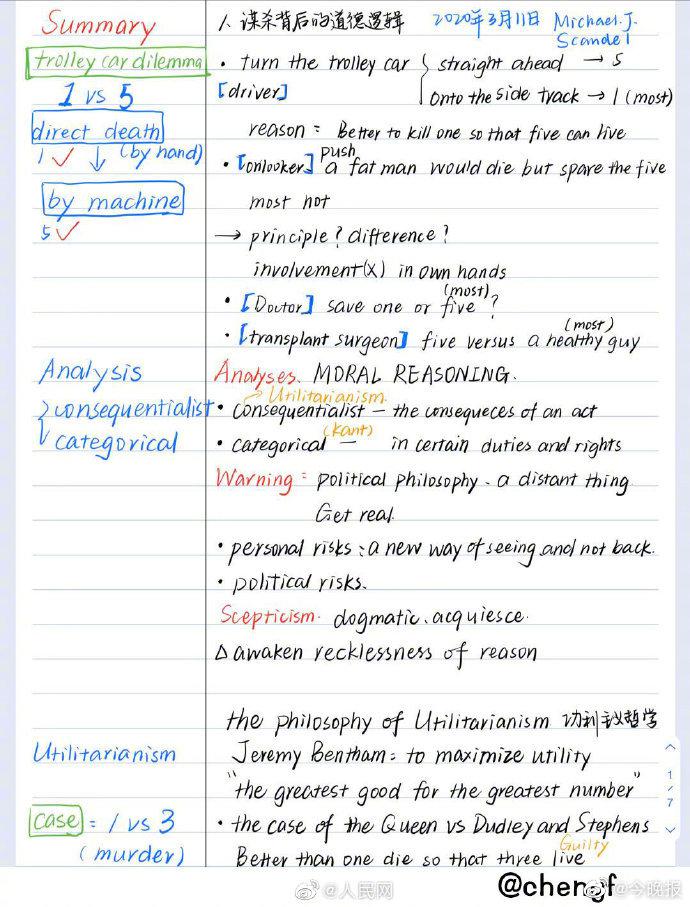 Summary
trolley car dilemma
1 vs 5
direct death
1 ✓ ↓ (by hand)
by machine
5 ✓
Analysis
consequentialist
categorical
Utilitarianism
case = 1 vs 3
(murder)
1. 谋杀背后的道德逻辑 2020年3月11日 Michael.J.
Scandel
• turn the trolley car { straight ahead → 5
[driver] onto the side track → 1 (most)
reason = Better to kill one so that five can live
• [onlooker] push a fat man would die but spare the five
most not
→ principle? difference?
involvement(x) in own hands
• [Doctor] save one or five (most)?
• [transplant surgeon] five versus a healthy guy (most)
Analyses. MORAL REASONING.
→ Utilitarianism.
• consequentialist – the consequeces of an act
(Kant)
• categorical – in certain duties and rights
Warning = political philosophy - a distant thing
Get real.
• personal risks : a new way of seeing and not back.
• political risks.
Scepticism. dogmatic. acquiesce.
Δ awaken recklessness of reason
the philosophy of Utilitarianism 功利主义哲学
Jeremy Bentham = to maximize utility
"the greatest good for the greatest number"
• the case of the Queen vs Dudley and Stephens
Better than one die so that three live Guilty
1
/
7
@人民网
@今晚报
@chengf